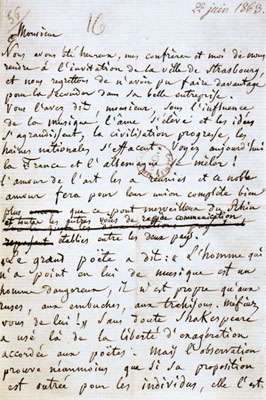 56
16
22 juin 1863.
Monsieur
Nous avons été heureux, mes confrères et moi de nous
rendre à l'invitation de la ville de Strasbourg,
et nous regrettons de n'avoir pu faire davantage
pour la seconder dans sa belle entreprise.
Vous l'avez dit monsieur, sous l'influence
de la musique, l'âme s'élève et les idées
s'agrandissent, la civilisation progresse, les
haines nationales s'effacent. Voyez aujourd'hui
la France et l'allemagne se mêler!
l'amour de l'art les a réunies et ce noble
amour fera pour leur union complète bien
plus que ce pont merveilleux du Rhin
et toute les autres voies de rapide communication,
établies entre les deux pays.
Le grand poëte a dit: «L'homme qui
n'a point en lui de musique est un
homme dangereux, il n'est propre qu'aux
ruses, aux embuches, aux trahisons. Méfiez
vous de lui!» Sans doute Shakespeare
a usé là de la liberté d'exagération
accordée aux poëtes. Mais l'observation
prouve néanmoins que si sa proposition
est outrée pour les individus, elle l'est